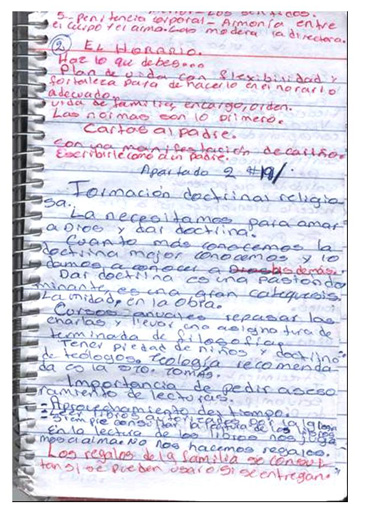 5- Penitencia corporal - Armonía entre
el cuerpo y el alma. Lo modera la directora.
② EL HORARIO.
Haz lo que debes...
Plan de vida con flexibilidad y
fortaleza para de hacerlo en el horario
adecuado.
vida de familia, encargo, orden.
Las normas son lo primero.
Cartas al padre.
con una manifestación de cariño.
Escribirle como a un padre.
Apartado 2 #19/
Formación doctrinal religio
sa.
La necesitamos para amar
a Dios y dar doctrina.
Cuanto más conocemos la
doctrina mejor conocemos y lo
damos a conocer a los demás.
Dar doctrina es una pasión do
minante, es una gran catequesis
La unidad, en la obra.
Cursos anuales repasar las
charlas y llevar una asignatura de
terminada de filosofía,
Tener piedad de niños y doctrina
de teólogos. Teología recomenda
da es la sto. tomás.
Importancia de pedir aseso
ramiento de lecturas.
Aprovechamiento del tiempo.
Siempre consultar
En la lectura de los libros nos juga
mos el alma. No nos hacemos regalos.
Los regalos de la familia se consul
tan si se pueden usar o si se entregan.